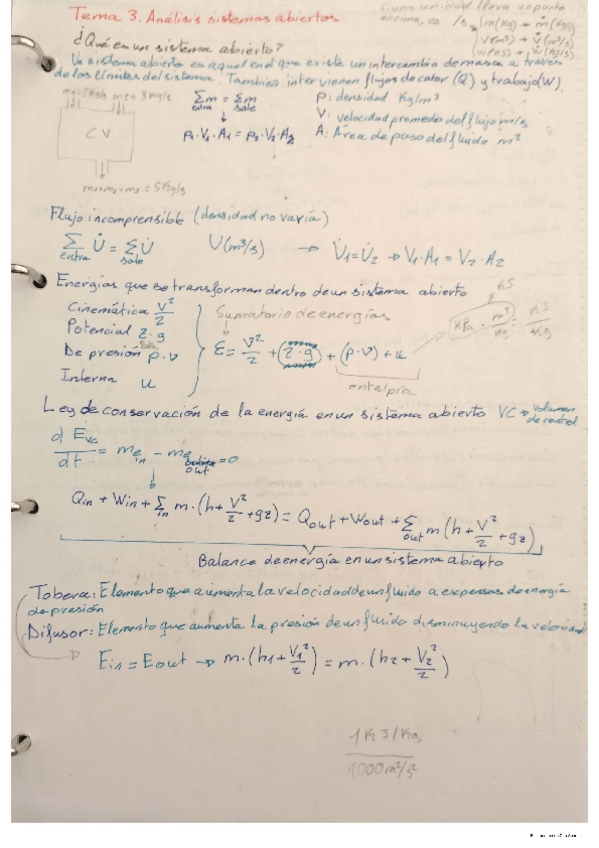 Tema 3. Análisis sistemas abiertos
Si una unidad lleva un punto
encima, es /s { m(Kg) → ṁ(Kg/s)
V(m³) → V̇(m³/s)
W(KJ) → Ẇ(KJ/s)
¿Qué es un sistema abierto?
Un sistema abierto es aquel en el que existe un intercambio de masa a través
de los límites del sistema. También intervienen flujos de calor (Q) y trabajo (W).
m1=2Kg/s m2=3Kg/s
CV
m1+m2=m3=5Kg/s
Σm entra = Σm sale
↓
ρ1·V1·A1=ρ2·V2·A2
ρ: densidad Kg/m³
V: velocidad promedio del flujo m/s
A: Área de paso del fluido m²
Flujo incomprensible (densidad no varía)
Σ entra U̇ = Σ sale U̇ U(m³/s) → U̇1=U̇2 → V1·A1=V2·A2
Energías que se transforman dentro de un sistema abierto
Cinemática V²/2
Potencial z·g
De presión p·v
Interna u
Sumatorio de energías
E= V²/2 + (z·g) + (p·v) + u
entalpía
KJ
KPa · m³/Kg = KJ/Kg
Ley de conservación de la energía en un sistema abierto VC → Volumen de control
d Evc/dt = me in − me out =0
↓
Qin + Win + Σin m·(h+V²/2+gz) = Qout + Wout + Σout m(h+V²/2+gz)
Balance de energía en un sistema abierto
Tobera: Elemento que aumenta la velocidad de un fluido a expensas de energía
de presión
Difusor: Elemento que aumenta la presión de un fluido disminuyendo la velocidad
Ein = Eout → m·(h1+V1²/2) = m·(h2+V2²/2)
1KJ/Kg
1000m²/s²